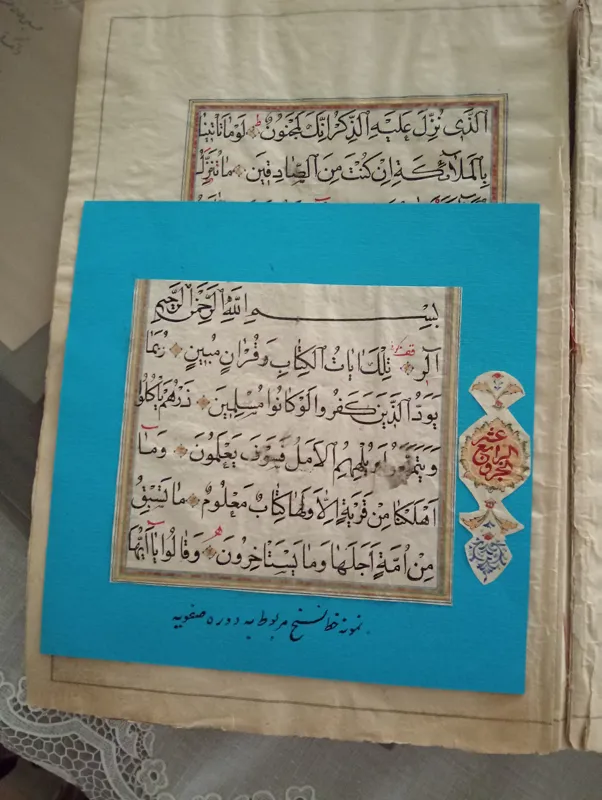 الَّذِي نُزِّلَ عَلَيْهِ الذِّكْرُ اِنَّكَ لَمَجْنُونٌ لَوْمَا تَأْتِينَا
بِالْمَلَآئِكَةِ اِنْ كُنْتَ مِنَ الصَّادِقِينَ مَا نُنَزِّلُ
بِسْمِ اللّٰهِ الرَّحْمٰنِ الرَّحِيمِ
الٓرٰ تِلْكَ اٰيَاتُ الْكِتَابِ وَقُرْاٰنٍ مُبِينٍ رُبَمَا
يَوَدُّ الَّذِينَ كَفَرُوا لَوْ كَانُوا مُسْلِمِينَ ذَرْهُمْ يَأْكُلُوا
وَيَتَمَتَّعُوا وَيُلْهِهِمُ الْاَمَلُ فَسَوْفَ يَعْلَمُونَ وَمَآ
اَهْلَكْنَا مِنْ قَرْيَةٍ اِلَّا وَلَهَا كِتَابٌ مَعْلُومٌ مَا تَسْبِقُ
مِنْ اُمَّةٍ اَجَلَهَا وَمَا يَسْتَاْخِرُونَ وَقَالُوا يَآ اَيُّهَا
الجزو الرابع عشر
نمونه خط نسخ مربوط به دوره صفویه